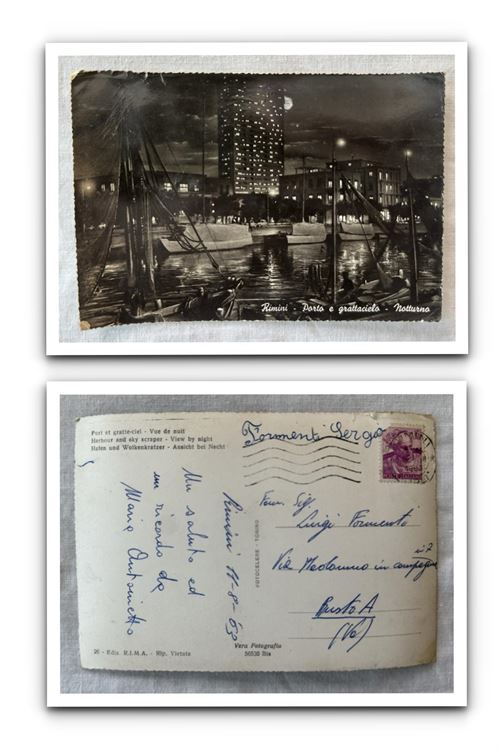 Rimini - Porto e grattacielo - Notturno
Port et gratte-ciel - Vue de nuit
Herbour and sky scraper - View by night
Hafen und Wolkenkratzer - Ansicht bei Necht
Formenti Sergo
Rimini 11-8-63
Un saluto ed
un ricordo da
Maria Antonietta
FOTOCELERE - TORINO
Luigi Formenti
Via Madonna in campagna
n° 2
Busto A
(Va)
26 - Ediz. R.I.M.A. - Rip. Vietata
Vera Fotografia
56530 Bis